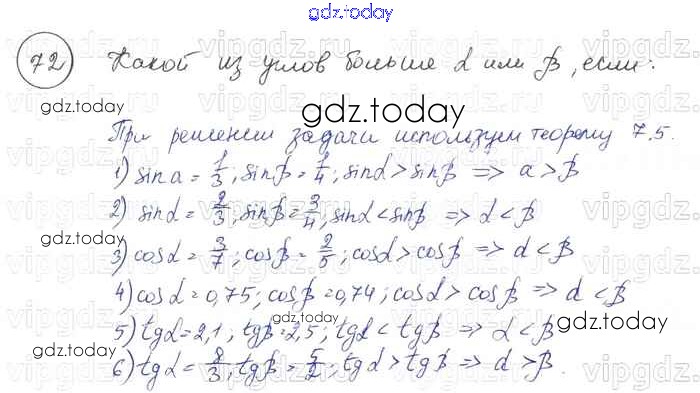 gdz.today
72 Какой из углов больше α или β, если:
gdz.today gdz.today
При решении задачи используем теорему 7.5.
1) sin a = 1/3; sin β = 1/4; sin α > sin β => a > β
2) sin α = 2/3; sin β = 3/4; sin α < sin β => α < β
gdz.today gdz.today
3) cos α = 3/7; cos β = 2/5; cos α > cos β => α < β
4) cos α = 0,75; cos β = 0,74; cos α > cos β => α < β
gdz.today
5) tg α = 2,1; tg β = 2,5; tg α < tg β => α < β
gdz.today gdz.today
6) tg α = 8/3; tg β = 5/2; tg α > tg β => α > β.
vipgdz.ru